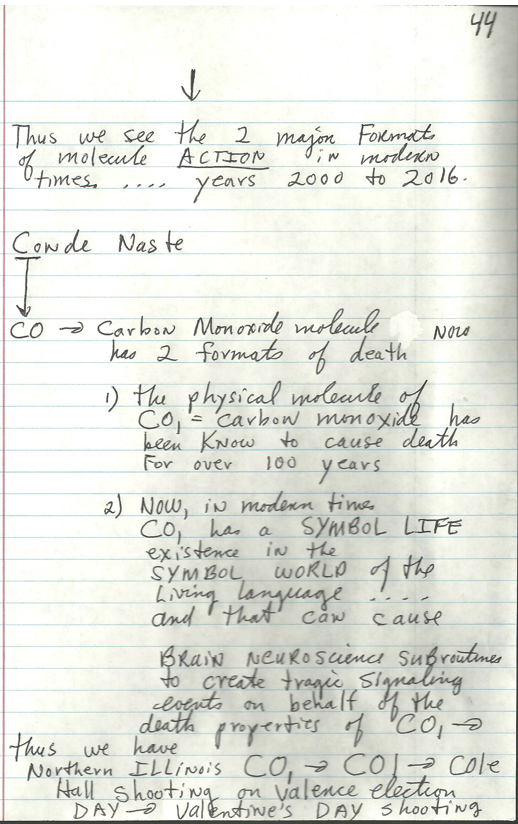 44
Thus we see the 2 major Formats
of molecule ACTION in modern
times .... years 2000 to 2016.
Conde Naste
CO → Carbon Monoxide molecule NOW
has 2 formats of death
1) the physical molecule of
CO₁ = carbon monoxide has
been Know to cause death
For over 100 years
2) NOW, in modern times
CO₁ has a SYMBOL LIFE
existence in the
SYMBOL WORLD of the
Living language ....
and that can cause
BRAIN NEUROScience Subroutines
to create tragic signaling
events on behalf of the
death properties of CO₁ →
thus we have
Northern ILLinois CO₁ → COl → Cole
Hall Shooting on Valence election
DAY → Valentine's DAY shooting